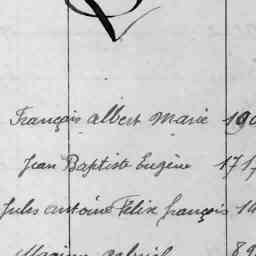 François albert marie 190
Jean Baptiste Eugène 171
Jules antoine Felix françois 14
gabriel 89